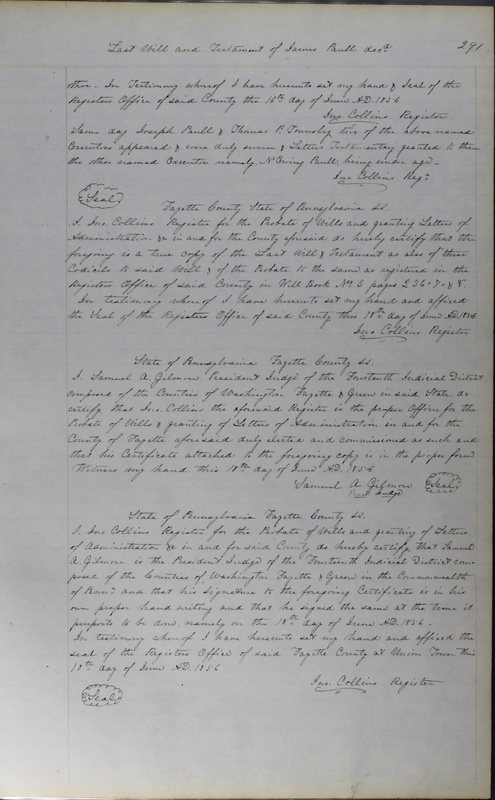 Last Will and Testament of James Paull decd 291
other. In Testimony whereof I have hereunto set my hand & Seal of the
Registers Office of said County the 16th day of June A.D. 1856
Jno. Collins Register
Same day Joseph Paull & Thomas P. Townsley two of the above named
Executors appeared & were duly sworn & Letters Testamentary granted to them
the other named Executor namely, N. Ewing Paull being under age.
Jno Collins Regr
Seal
Fayette County State of Pennsylvania ss.
I. Jno. Collins Register for the Probate of Wills and granting Letters of
Administration &c in and for the County aforesaid do hereby certify that the
foregoing is a true copy of the Last Will & Testament as also of three
Codicils to said Will & of the Probate to the same as registered in the
Registers Office of said County in Will Book No 3 pages 236. 7. & 8.
In testimony whereof I have hereunto set my hand and affixed
the Seal of the Registers Office of said County this 18th day of June A.D. 1856
Jno Collins Register
State of Pennsylvania Fayette County ss.
I. Samuel A. Gilmore President Judge of the Fourteenth Judicial District
composed of the Counties of Washington Fayette & Green in said State, do
certify that Jno. Collins the aforesaid Register is the proper Officer for the
Probate of Wills & granting of Letters of Administration in and for the
County of Fayette aforesaid duly elected and commissioned as such and
that his Certificate attached to the foregoing copy is in the proper form
Witness my hand this 18th day of June A.D. 1856
Samuel A Gilmore Seal
Pres Judge
State of Pennsylvania Fayette County ss.
I. Jno Collins Register for the Probate of Wills and granting of Letters
of Administration &c in and for said County do hereby certify that Samuel
A. Gilmore is the President Judge of the Fourteenth Judicial District com
posed of the Counties of Washington Fayette & Green in the Commonwealth
of Penna and that his signature to the foregoing Certificate is in his
own proper hand writing and that he signed the same at the time it
purports to be done, namely on the 18th day of June A.D. 1856 -
In testimony whereof I have hereunto set my hand and affixed the
seal of the Registers Office of said Fayette County at Union Town this
18th day of June A.D. 1856
Jno. Collins Register
Seal